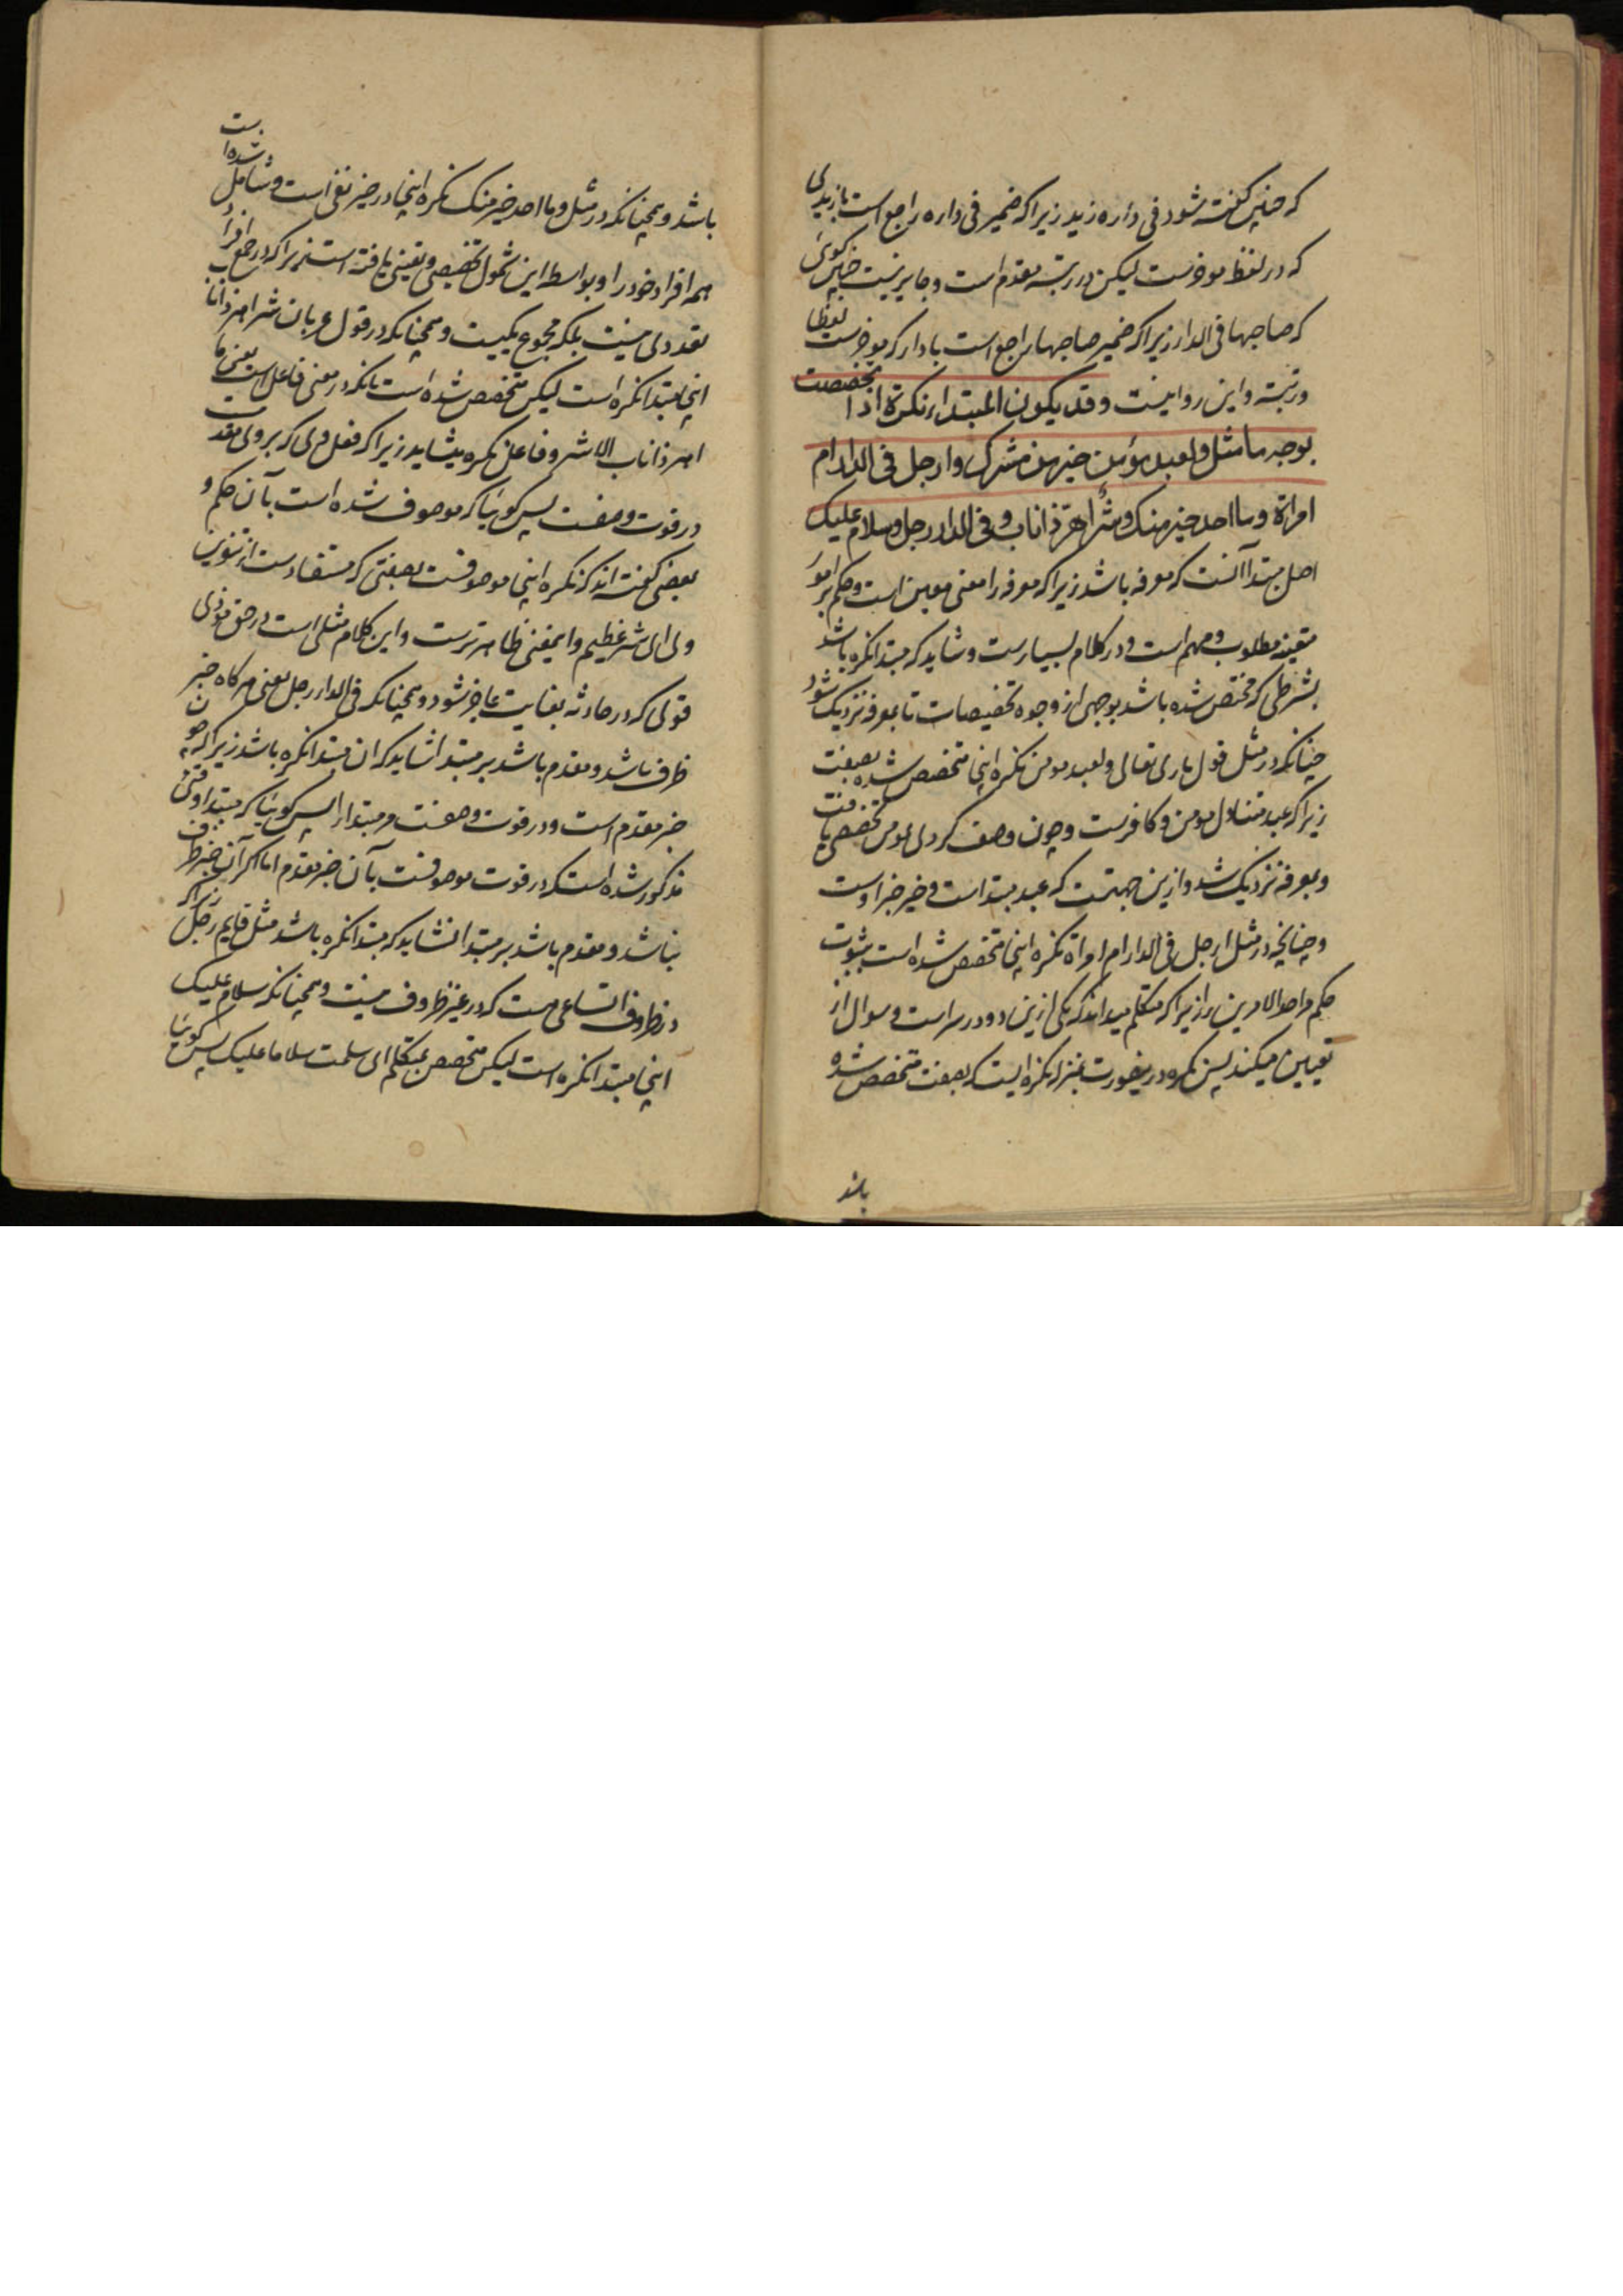 که چنین گفته شود فی داره زید زیرا که ضمیر فی داره راجع است بازیدی
که در لفظ موخرست لیکن در رتبه مقدم است و جایز نیست چنین کوئی
که صاحبها فی الدار زیرا که ضمیر صاحبها راجع است با دار که موخرست لفظا
و رتبة و این روا نیست وقد یکون المبتداء نکرة اذا تخصصت
بوجه ما مثل ولعبد مؤمن خیر من مشرک وارجل فی الدار ام
امراة وما احد خیر منک وشر اهر ذا ناب وفی الدار رجل وسلام علیک
اصل مبتدا آنست که معرفه باشد زیرا که معرفه را معنی معین است و حکم بر امور
معینه مطلوب و مهم است و در کلام بسیارست و شاید که مبتدا نکره باشد
بشرطی که مختص شده باشد بوجهی از وجوه تخصیصات تا بمعرفه نزدیک شود
چنانکه در مثل قول باری تعالی ولعبد مومن نکره اینجا متخصص شده بصفت
زیرا که عبد متناول مومن و کافرست و چون وصف کردی بمومن تخصصی یافت
و بمعرفه نزدیک شد و ازین جهتست که عبد مبتدا است و خیر خبر اوست
و چنانچه در مثل ارجل فی الدار ام امراة نکره اینجا متخصص شده است بثبوت
حکم مر احد الامرین را زیرا که متکلم میداند که یکی ازین دو در سراست و سوال از
تعیین میکند پس نکره درینصورت بمنزله نکره ایست که بصفت متخصص شده
باشد
باشد و همچنانکه در مثل و ما احد خیر منک نکره اینجا در خیز نفی است و شامل شده است
همه افراد خود را و بواسطه این شمول تخصیصی و تعینی یافته است زیرا که در جمع افراد
تعددی نیست بلکه مجموع یکیست و همچنانکه در قول عربان شر اهر ذا ناب
اینجا مبتدا نکره است لیکن متخصص شده است بانکه در معنی فاعل است یعنی ما
اهر ذا ناب الا شر و فاعل نکره میشاید زیرا که فعل وی که بر وی مقدمست
در قوت وصفست پس کوئیا که موصوف شده است بآن حکم و
بعضی گفته اند که نکره اینجا موصوفست بصفتی که مستفادست از تنوین
وی ای شر عظیم و اینمعنی ظاهرترست و این کلام مثلی است در حق مردی
قوی که در حادثه بغایت عاجز شود و همچنانکه فی الدار رجل یعنی هرکاه خبر
ظرف باشد و مقدم باشد بر مبتدا شاید که آن مبتدا نکره باشد زیرا که چون
خبر مقدم است و در قوت وصفست مر مبتدا را پس کوئیا که مبتدا وقتی
مذکور شده است که در قوت موصوفست بآن خبر مقدم اما اکر آن خبر ظرف
نباشد و مقدم باشد بر مبتدا نشاید که مبتدا نکره باشد مثل قایم رجل زیرا که
در ظروف اتساعی هست که در غیر ظروف نیست و همچنانکه سلام علیک
اینجا مبتدا نکره است لیکن متخصص بمتکلم ای سلمت سلاما علیک پس کوئیا